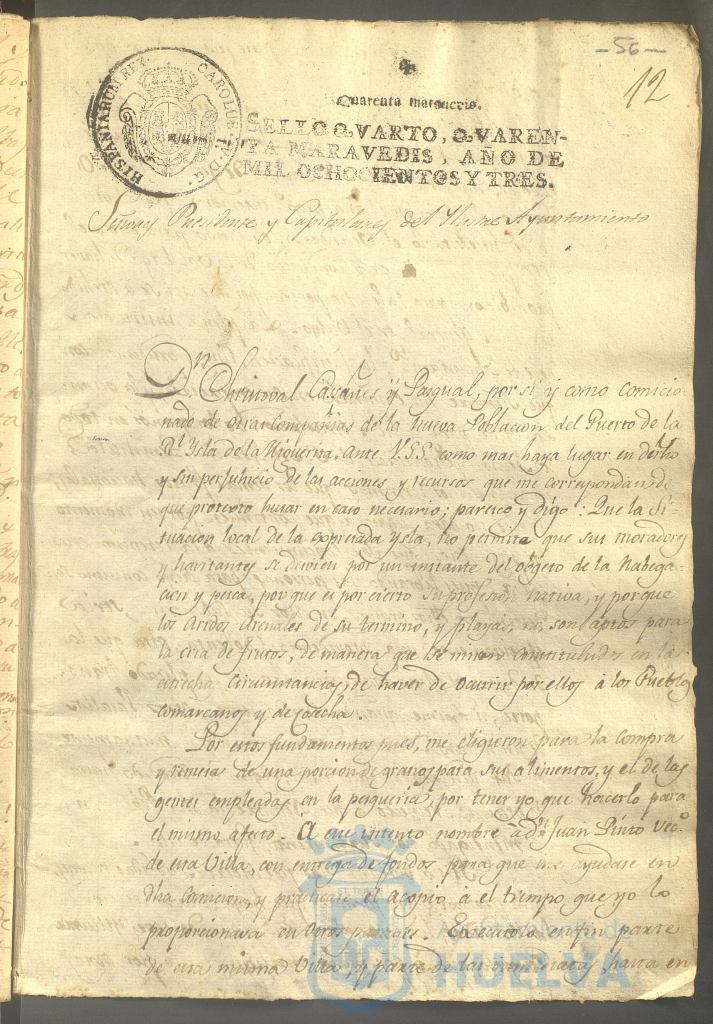 - 56 -
12
HISPANIARUM REX
CAROLUS IV D.G.
Quarenta maravedis.
SELLO QVARTO, QVAREN-
TA MARAVEDIS, AÑO DE
MIL OCHOCIENTOS Y TRES.
Señores Presidente y Capitulares del Ilustre Ayuntamiento
Dn Christoval Casañes y Pasqual, por sí y como comicio-
nado de otras Compañias de la nueva Poblacion del Puerto de la
Rl Ysla de la Higuerita, ante V.S.S. como mas haya lugar en dro
y sin perjuhicio de las acciones y recursos que me correspondan, de
que protexto husar en caso necesario; paresco y digo: Que la Si-
tuacion local de la expresada Ysla, no permite que sus moradores
y havitantes se desvien por un instante del objeto de la Nabega-
cion y pesca, por que es por cierto su profesion nativa, y porque
los Aridos Arenales de su termino, y playas, no son aptos para
la cria de frutos, de manera que se miran constituhidos en la
estrecha circunstancia, de haver de ocurrir por ellos à los Pueblos
comarcanos y de cosecha.
Por estos fundamentos pues, me eligieron para la compra
y remesas de una porcion de granos para sus alimentos, y el de las
gentes empleadas en la pesqueria, por tener yo que hacerlo para
el mismo efecto. A ese intento nombre à Dn Juan Pinto Veco
de esta Villa, con entrega de fondos, para que me ayudase en
dha Comicion, y practicase el acopio à el tiempo que yo lo
proporcionava en otros parages. Executolo en fin parte
de esta misma Villa y parte de las inmediatas, hasta en
Ayuntamiento de
HUELVA